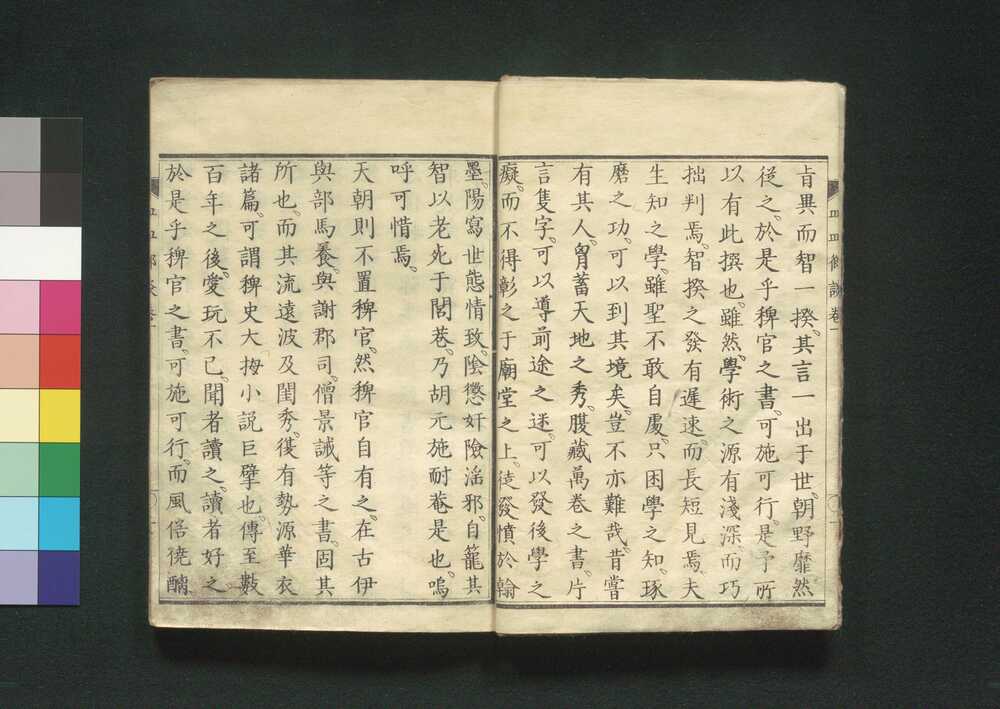 旨異而智一揆。其言一出于世。朝野靡然
從之。於是乎稗官之書。可施可行。是予所
以有此撰也。雖然。學術之源有淺深而巧
拙判焉。智揆之發有遲速。而長短見焉。夫
生知之學。雖聖不敢自處。只困學之知。琢
磨之功。可以到其境矣。豈不亦難哉。昔嘗
有其人。胷蓄天地之秀。腹藏萬卷之書。片
言隻字。可以導前途之迷。可以發後學之
癡。而不得彰之于廟堂之上。徒發憤於翰
墨。陽寫世態情致。陰懲奸險淫邪。自籠其
智以老死于閭巷。乃胡元施耐菴是也。嗚
呼可惜焉。
天朝則不置稗官。然稗官自有之。在古伊
與部馬養。與謝郡司。僧景誡等之書。固其
所也。而其流遠波及閨秀。復有勢源華衣
諸篇。可謂稗史大拇小説巨擘也。傳至數
百年之後。愛玩不已。聞者讀之。讀者好之
於是乎稗官之書。可施可行。而風俗澆醨